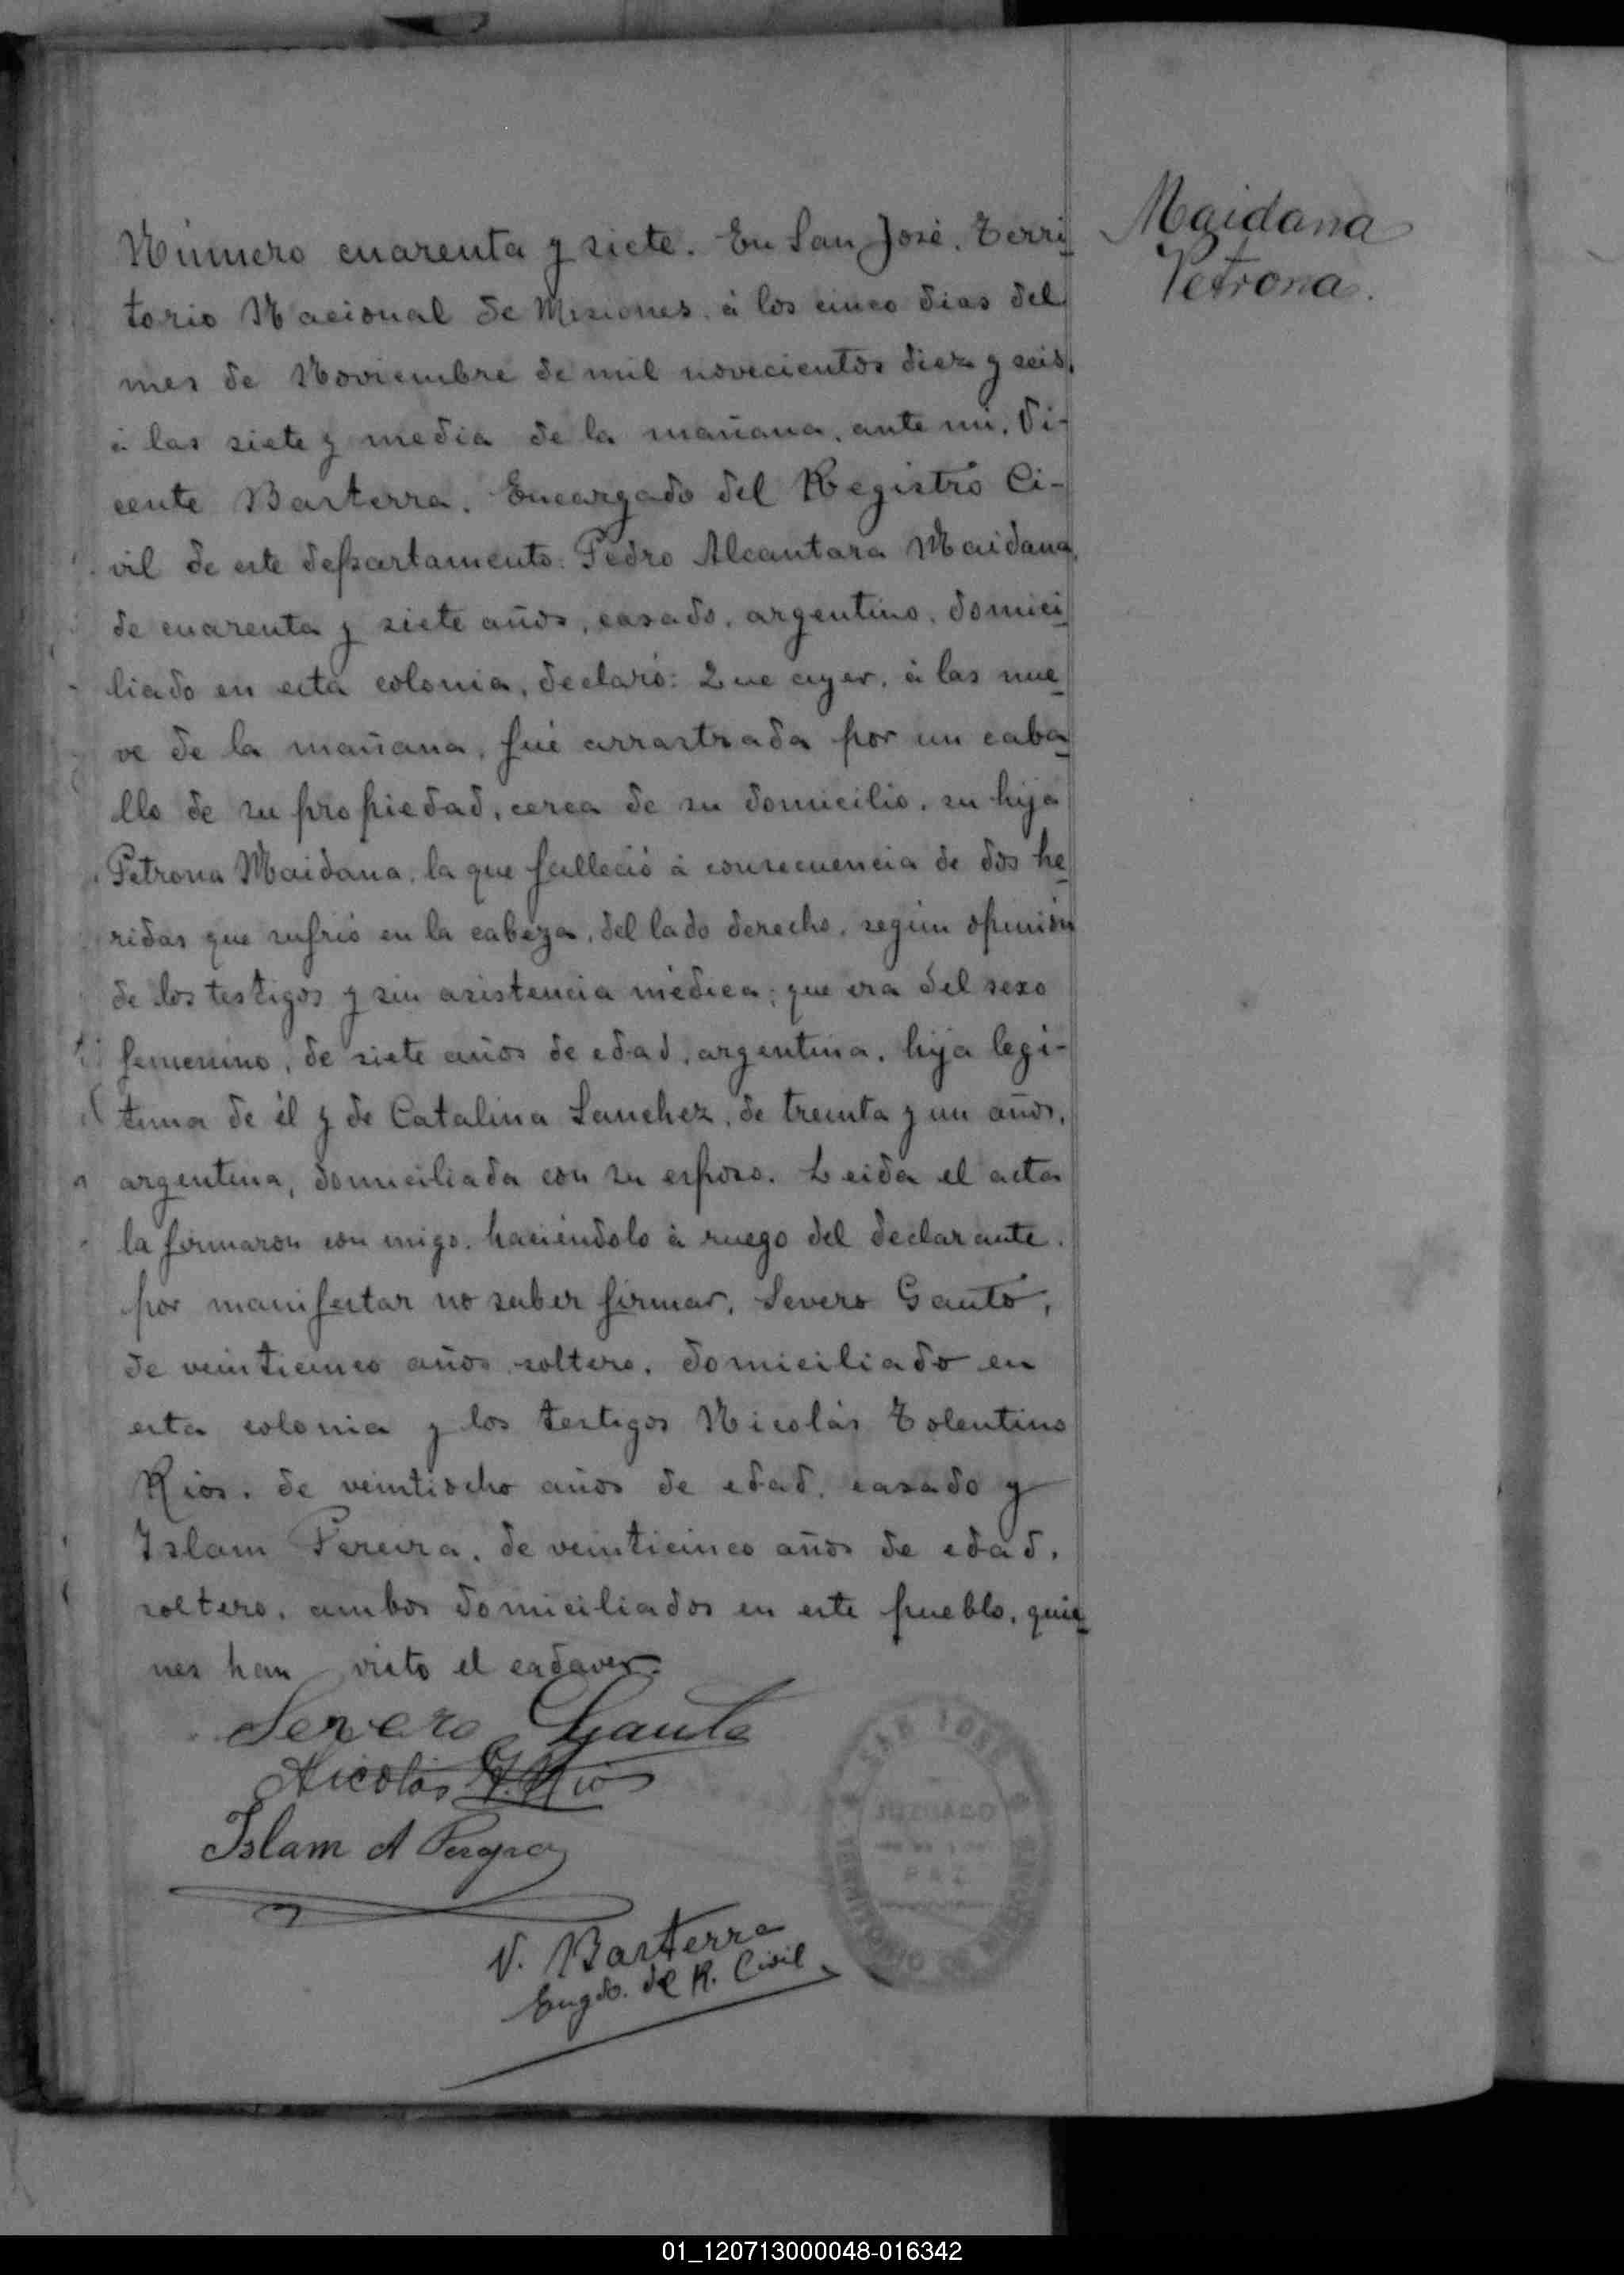 Maidana
Petrona.
Número cuarenta y siete. En San José, Terri
torio Nacional de Misiones, á los cinco dias del
mes de Noviembre de mil novecientos diez y seis,
á las siete y media de la mañana, ante mi, Vi-
cente Basterra, Encargado del Registro Ci-
vil de este departamento: Pedro Alcantara Maidana,
de cuarenta y siete años, casado, argentino, domici
liado en esta colonia, declaró: Que ayer, á las nue
ve de la mañana, fué arrastrada por un caba
llo de su propiedad, cerca de su domicilio, su hija
Petrona Maidana, la que falleció á consecuencia de dos he
ridas que sufrió en la cabeza, del lado derecho, según opinión
de los testigos y sin asistencia médica; que era del sexo
femenino, de siete años de edad, argentina, hija legi-
tima de él y de Catalina Sanchez, de treinta y un años,
argentina, domiciliada con su esposo. Leida el acta
la firmaron con migo, haciéndolo á ruego del declarante,
por manifestar no saber firmar, Severo Gauto,
de veinticinco años, soltero, domiciliado en
esta colonia y los testigos Nicolás Tolentino
Rios, de veintiocho años de edad, casado y
Islam Pereira, de veinticinco años de edad,
soltero, ambos domiciliados en este pueblo, quie
nes han visto el cadaver.
Severo Gauto
Nicolás T. Rios
Islam A Pereyra
V. Basterra
Engdo. del R. Civil
SAN JOSE
JUZGADO
PAZ
TERRITORIO DE MISIONES
01_120713000048-016342